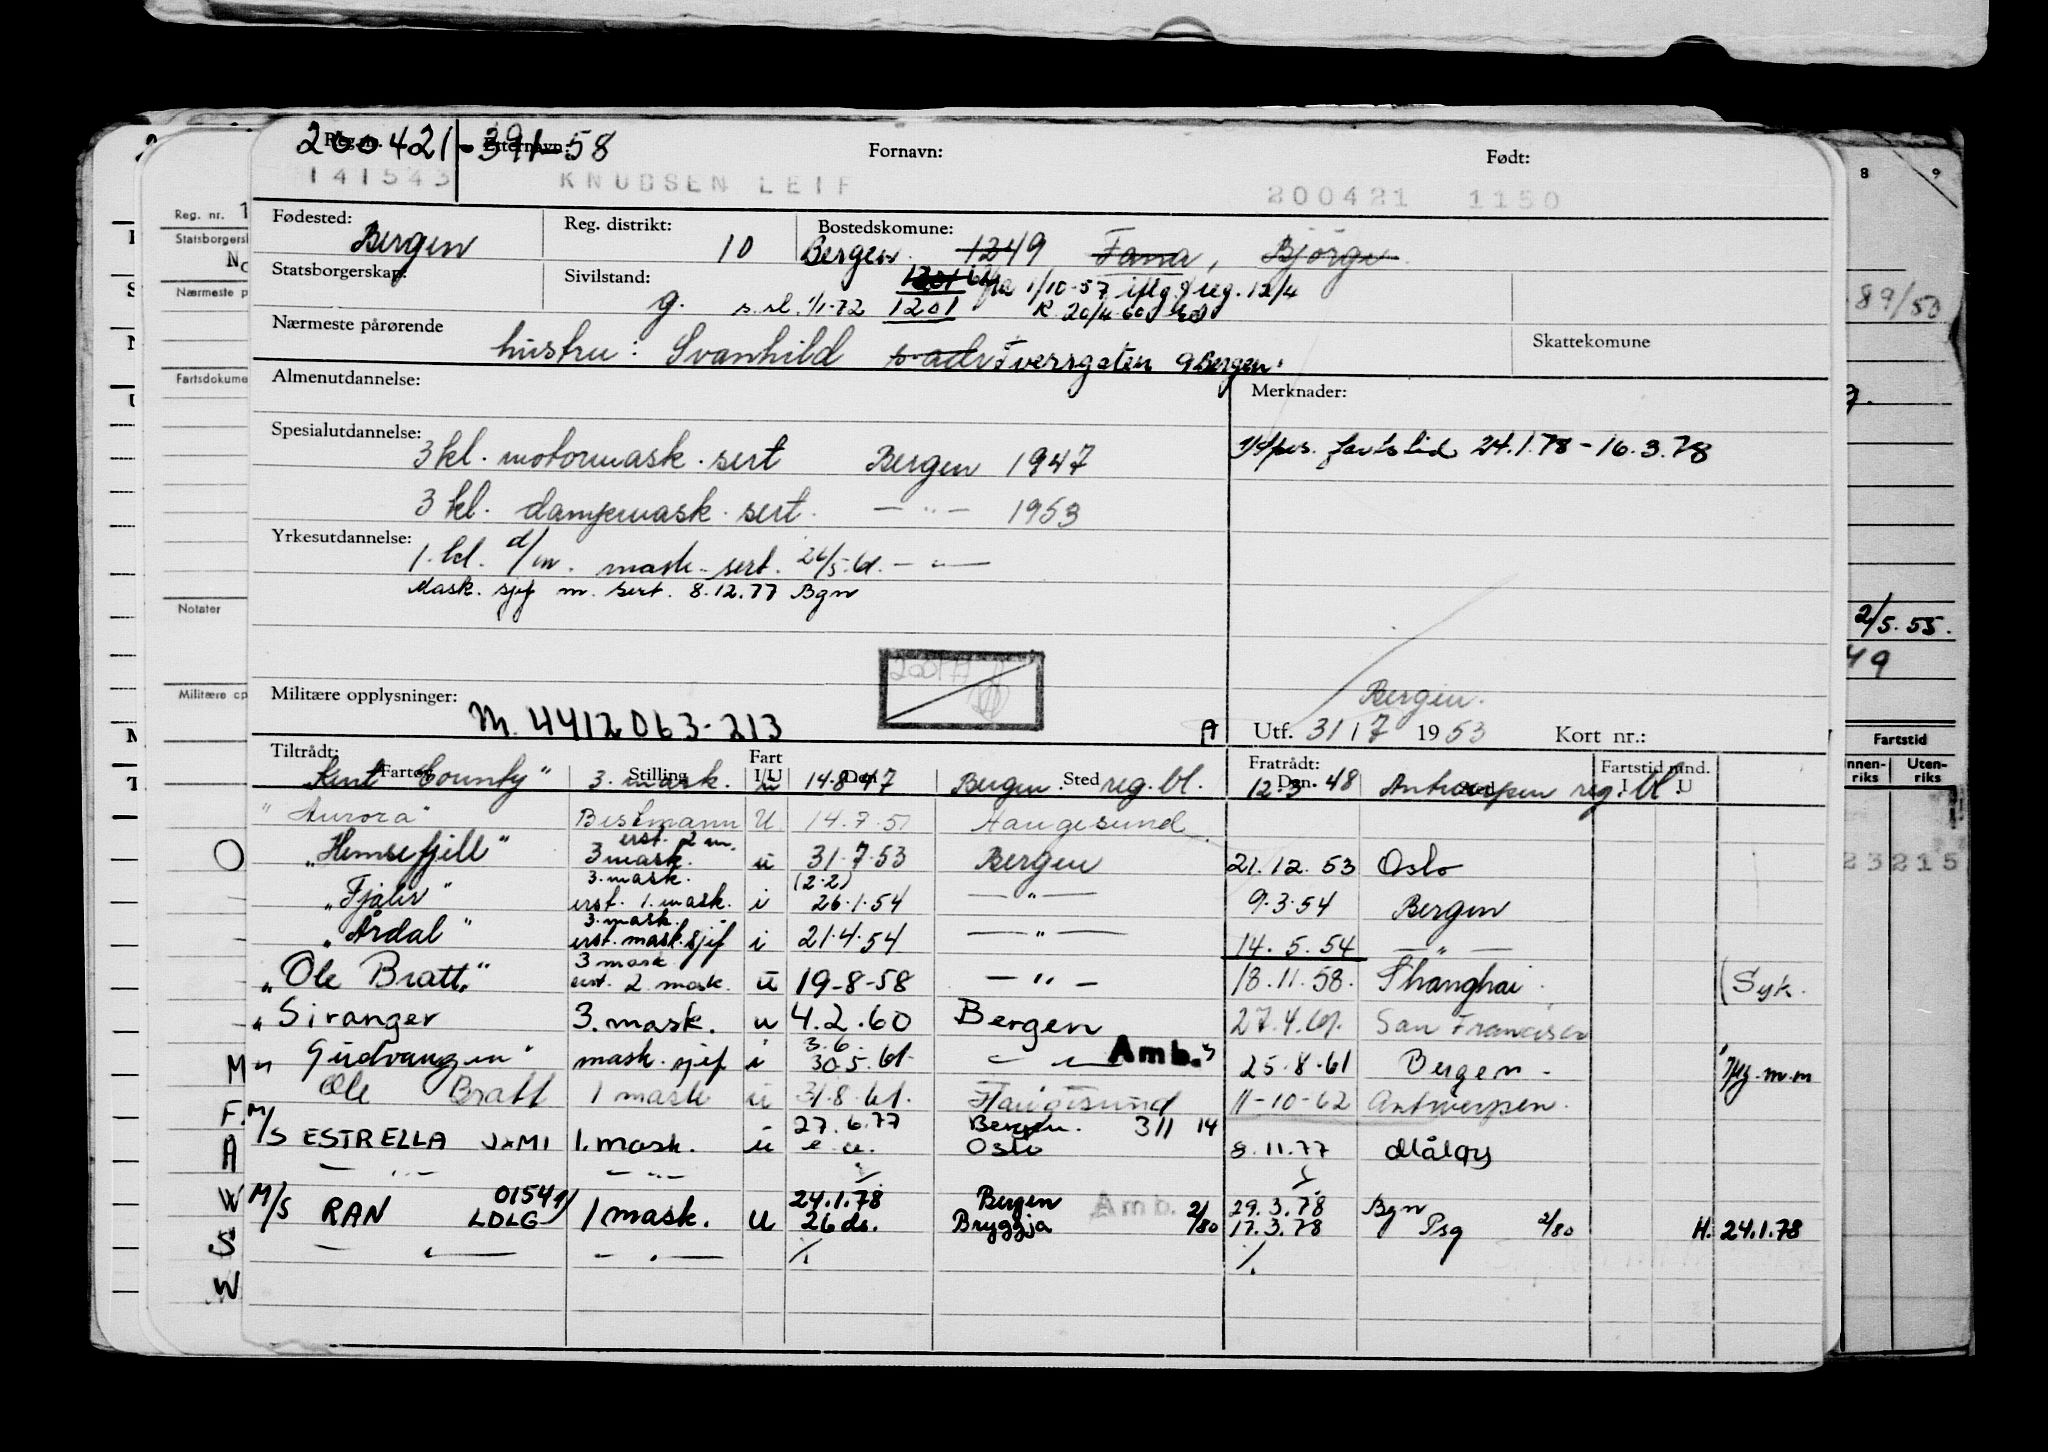 Reg. nr. 200421-39158 Etternavn: Fornavn: Født:
141543 KNUDSEN LEIF 200421 1150
Fødested: Bergen Reg. distrikt: 10 Bostedskomune: Bergen 1249 Fana,
Statsborgerskap: Sivilstand: g. s.sl. 1/1-72 1201 1/10-57 iflg. 12/4
1201 20/4 60
Nærmeste pårørende hustru: Svanhild Tverrgaten 9 Bergen. Skattekomune
Almenutdannelse: Merknader:
Spesialutdannelse: 3 kl. motormask. sert Bergen 1947 fartstid 24.1.78 - 16.3.78
3 kl. dampmask. sert. — " — 1953
Yrkesutdannelse: 1. kl. d/m. mask. sert. 26/5-61. — " —
Mask. sjef m. sert. 8.12.77 Bgn
Militære opplysninger: M. 4412063-213
Bergen.
A Utf. 31/7 1953 Kort nr.:
Tiltrådt: Fartøy Stilling Fart I/U Den Sted Fratrådt: Den Sted Fartstid mnd. I U
"Kent County" 3. mask. u 14-8-47 Bergen reg. bl. 12.3.48 Antwerpen reg. bl.
"Aurora" Bestmann U 14.7.51 Haugesund
"Hemsefjell" erst. 2 m. 3 mask. u 31.7.53 Bergen 21.12.53 Oslo
"Fjaler" 3. mask. erst. 1. mask. i (2.2) 26.1.54 — " — 9.3.54 Bergen
"Årdal" 3. mask. erst. mask. sjef i 21.4.54 — " — 14.5.54 — " —
"Ole Bratt" 3 mask. erst. 2. mask. u 19-8-58 — " — 18.11.58. Shanghai (Syk.
"Siranger 3. mask. u 4.2.60 Bergen 27.4.61. San Francisco
"Gudvangen" mask. sjef i 3.6. 30.5.61. — " — Amb. 25.8.61 Bergen
Ole Bratt 1 mask u 31.8.61. Haugesund 11-10-62 Antwerpen.
M/S ESTRELLA JXMI 1. mask. u 27.6.77 Bergen. Oslo 311 14 8.11.77 Måløy
— " — — " — ⁒ ⁒
M/S RAN 01549 LDLG 1 mask. U 24.1.78 26 ds. Bergen Bryggja Amb. 2/80 29.3.78 17.3.78 Bgn Psg 2/80 H. 24.1.78
— " — — " — ⁒ ⁒
Reg. nr. 1
Statsborgersk
No
Nærmeste p
Fartsdokume
Notater
Militære op
O
M
F.
A
W
S
W
8 9
89/53
2/5.55.
49
Fartstid
Innenriks Utenriks
23215